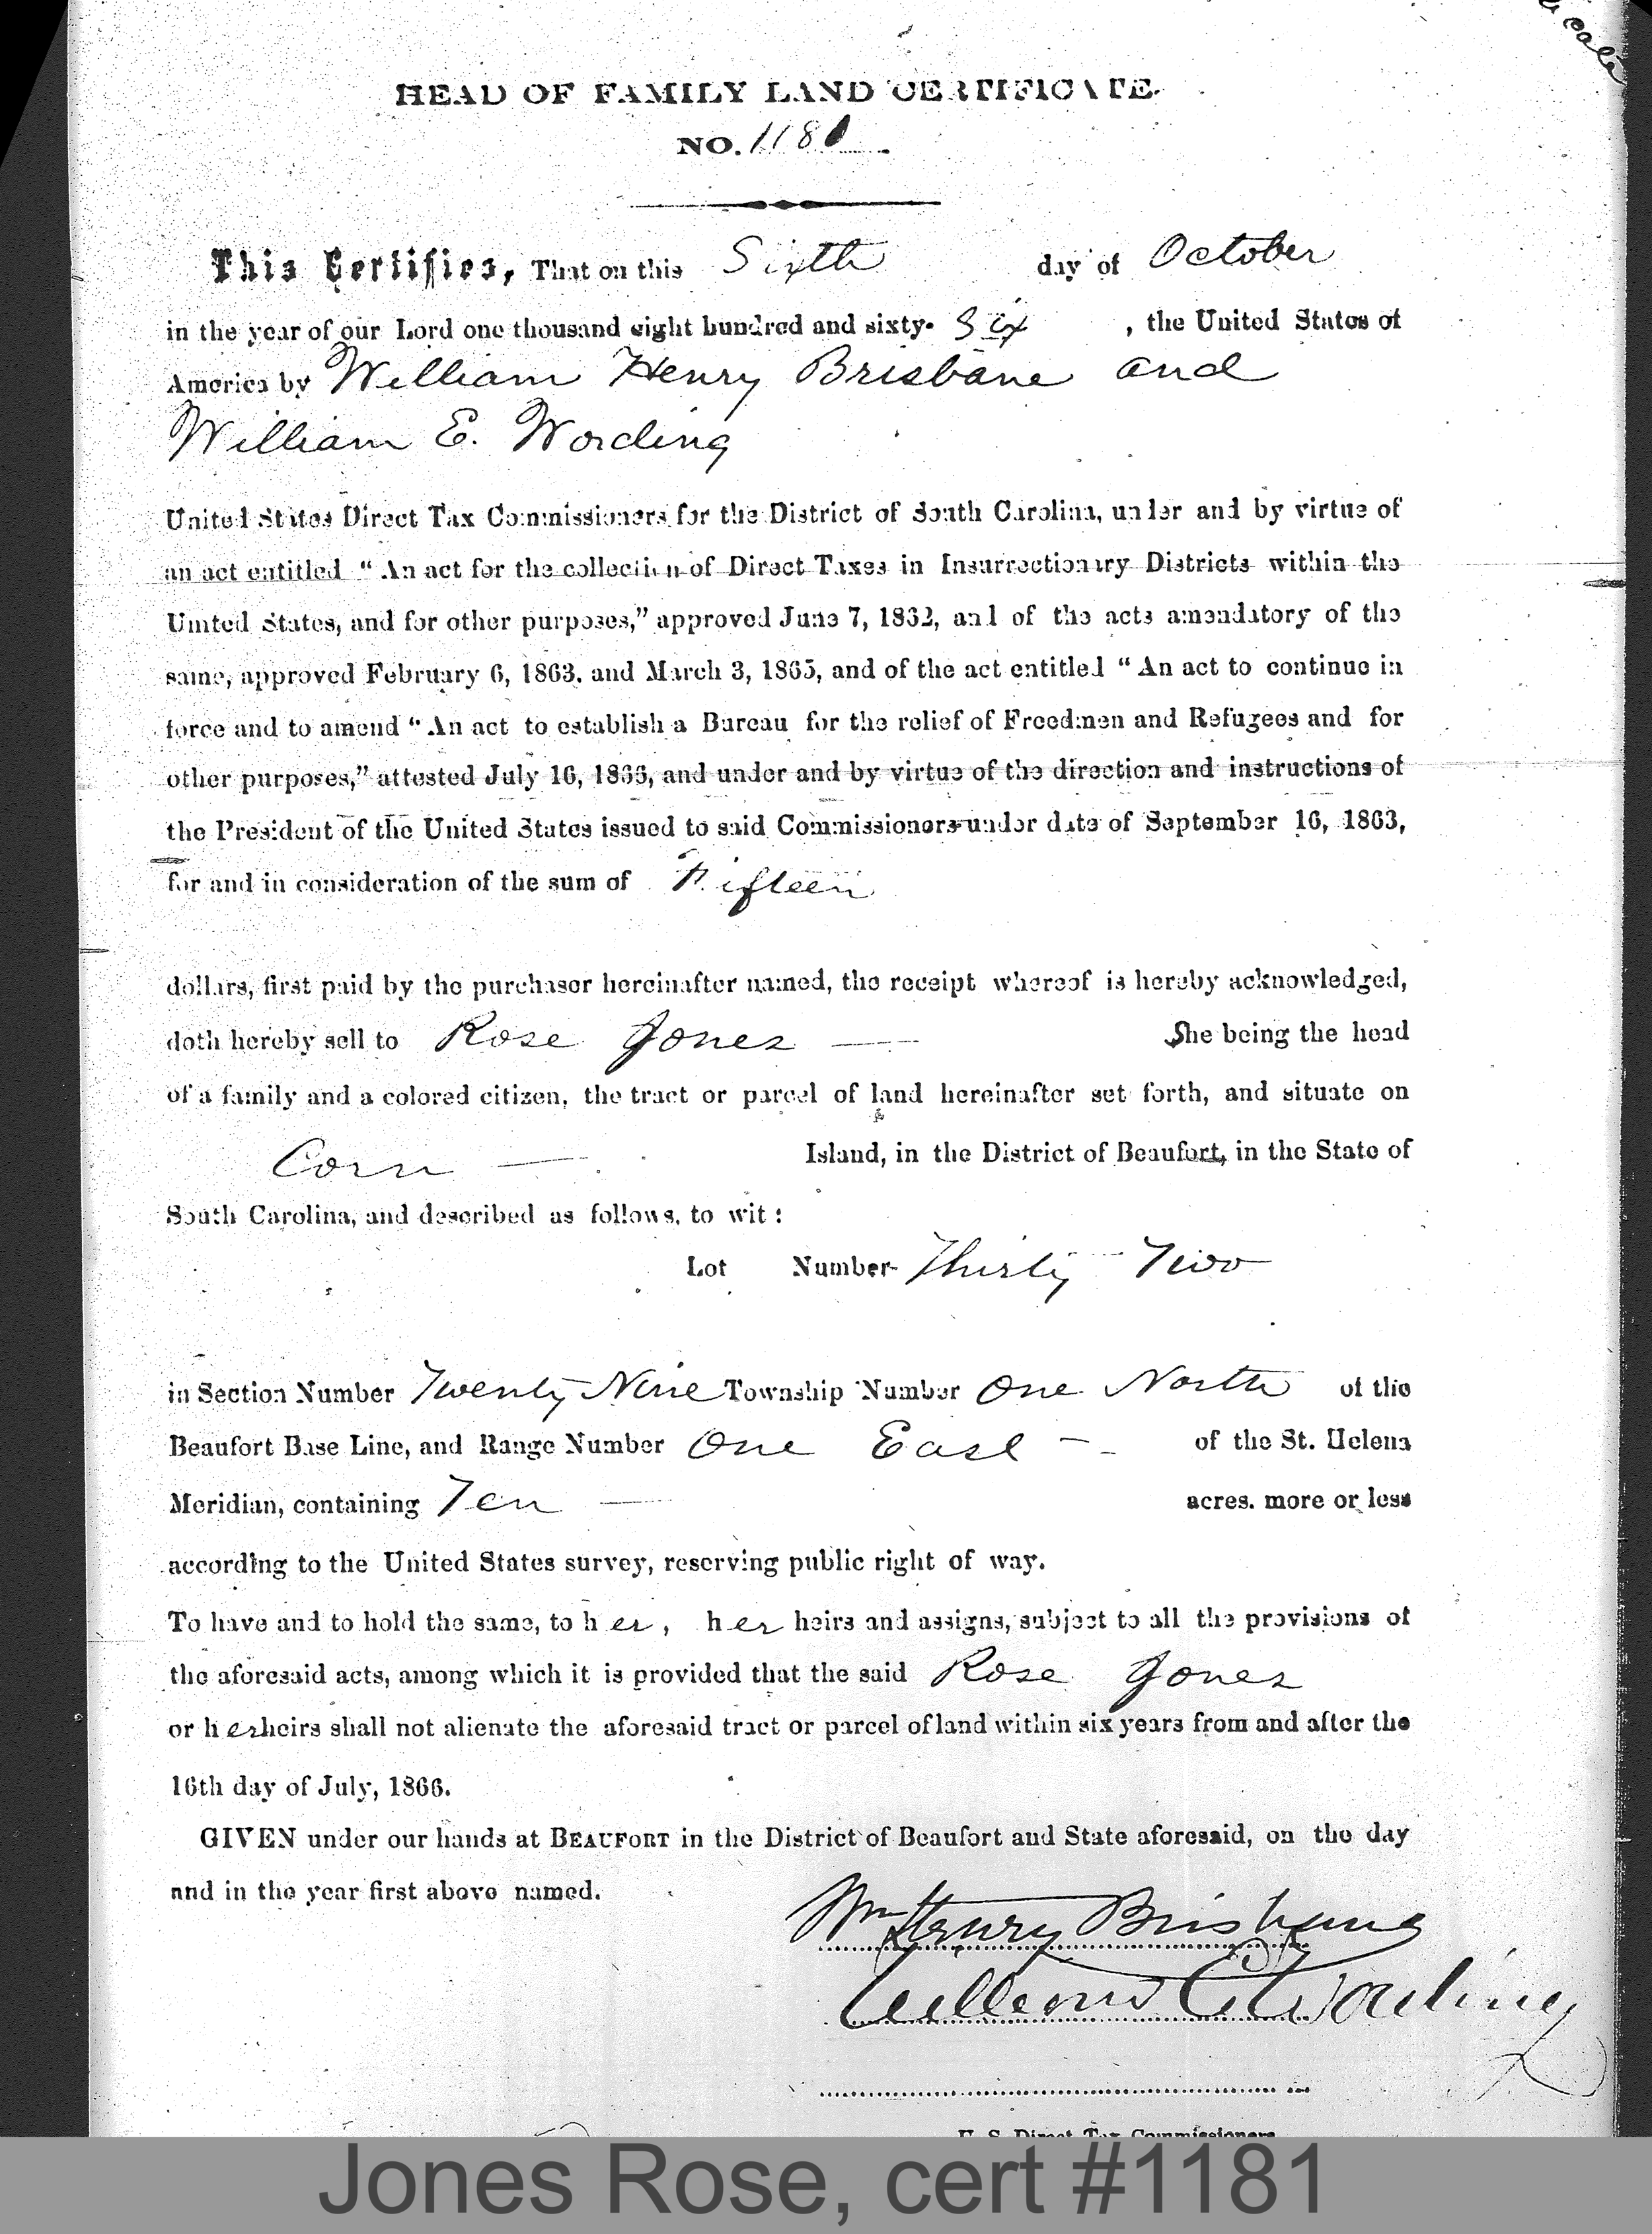 HEAD OF FAMILY LAND CERTIFICATE.
NO. 1181.
This Certifies, That on this Sixth day of October
in the year of our Lord one thousand eight hundred and sixty-Six, the United States of
America by William Henry Brisbane and
William E. Wording
United States Direct Tax Commissioners for the District of South Carolina, under and by virtue of
an act entitled "An act for the collection of Direct Taxes in Insurrectionary Districts within the
United States, and for other purposes," approved June 7, 1862, and of the acts amendatory of the
same, approved February 6, 1863, and March 3, 1865, and of the act entitled "An act to continue in
force and to amend "An act to establish a Bureau for the relief of Freedmen and Refugees and for
other purposes," attested July 16, 1866, and under and by virtue of the direction and instructions of
the President of the United States issued to said Commissioners under date of September 16, 1863,
for and in consideration of the sum of Fifteen
dollars, first paid by the purchaser hereinafter named, the receipt whereof is hereby acknowledged,
doth hereby sell to Rose Jones — She being the head
of a family and a colored citizen, the tract or parcel of land hereinafter set forth, and situate on
Corn — Island, in the District of Beaufort, in the State of
South Carolina, and described as follows, to wit:
Lot Number Thirty Two
in Section Number Twenty Nine Township Number One North of the
Beaufort Base Line, and Range Number One East — of the St. Helena
Meridian, containing Ten — acres. more or less
according to the United States survey, reserving public right of way.
To have and to hold the same, to her, her heirs and assigns, subject to all the provisions of
the aforesaid acts, among which it is provided that the said Rose Jones
or her heirs shall not alienate the aforesaid tract or parcel of land within six years from and after the
16th day of July, 1866.
GIVEN under our hands at BEAUFORT in the District of Beaufort and State aforesaid, on the day
and in the year first above named.
Wm Henry Brisbane
William E. Wording
U. S. Direct Tax Commissioners
Jones Rose, cert #1181